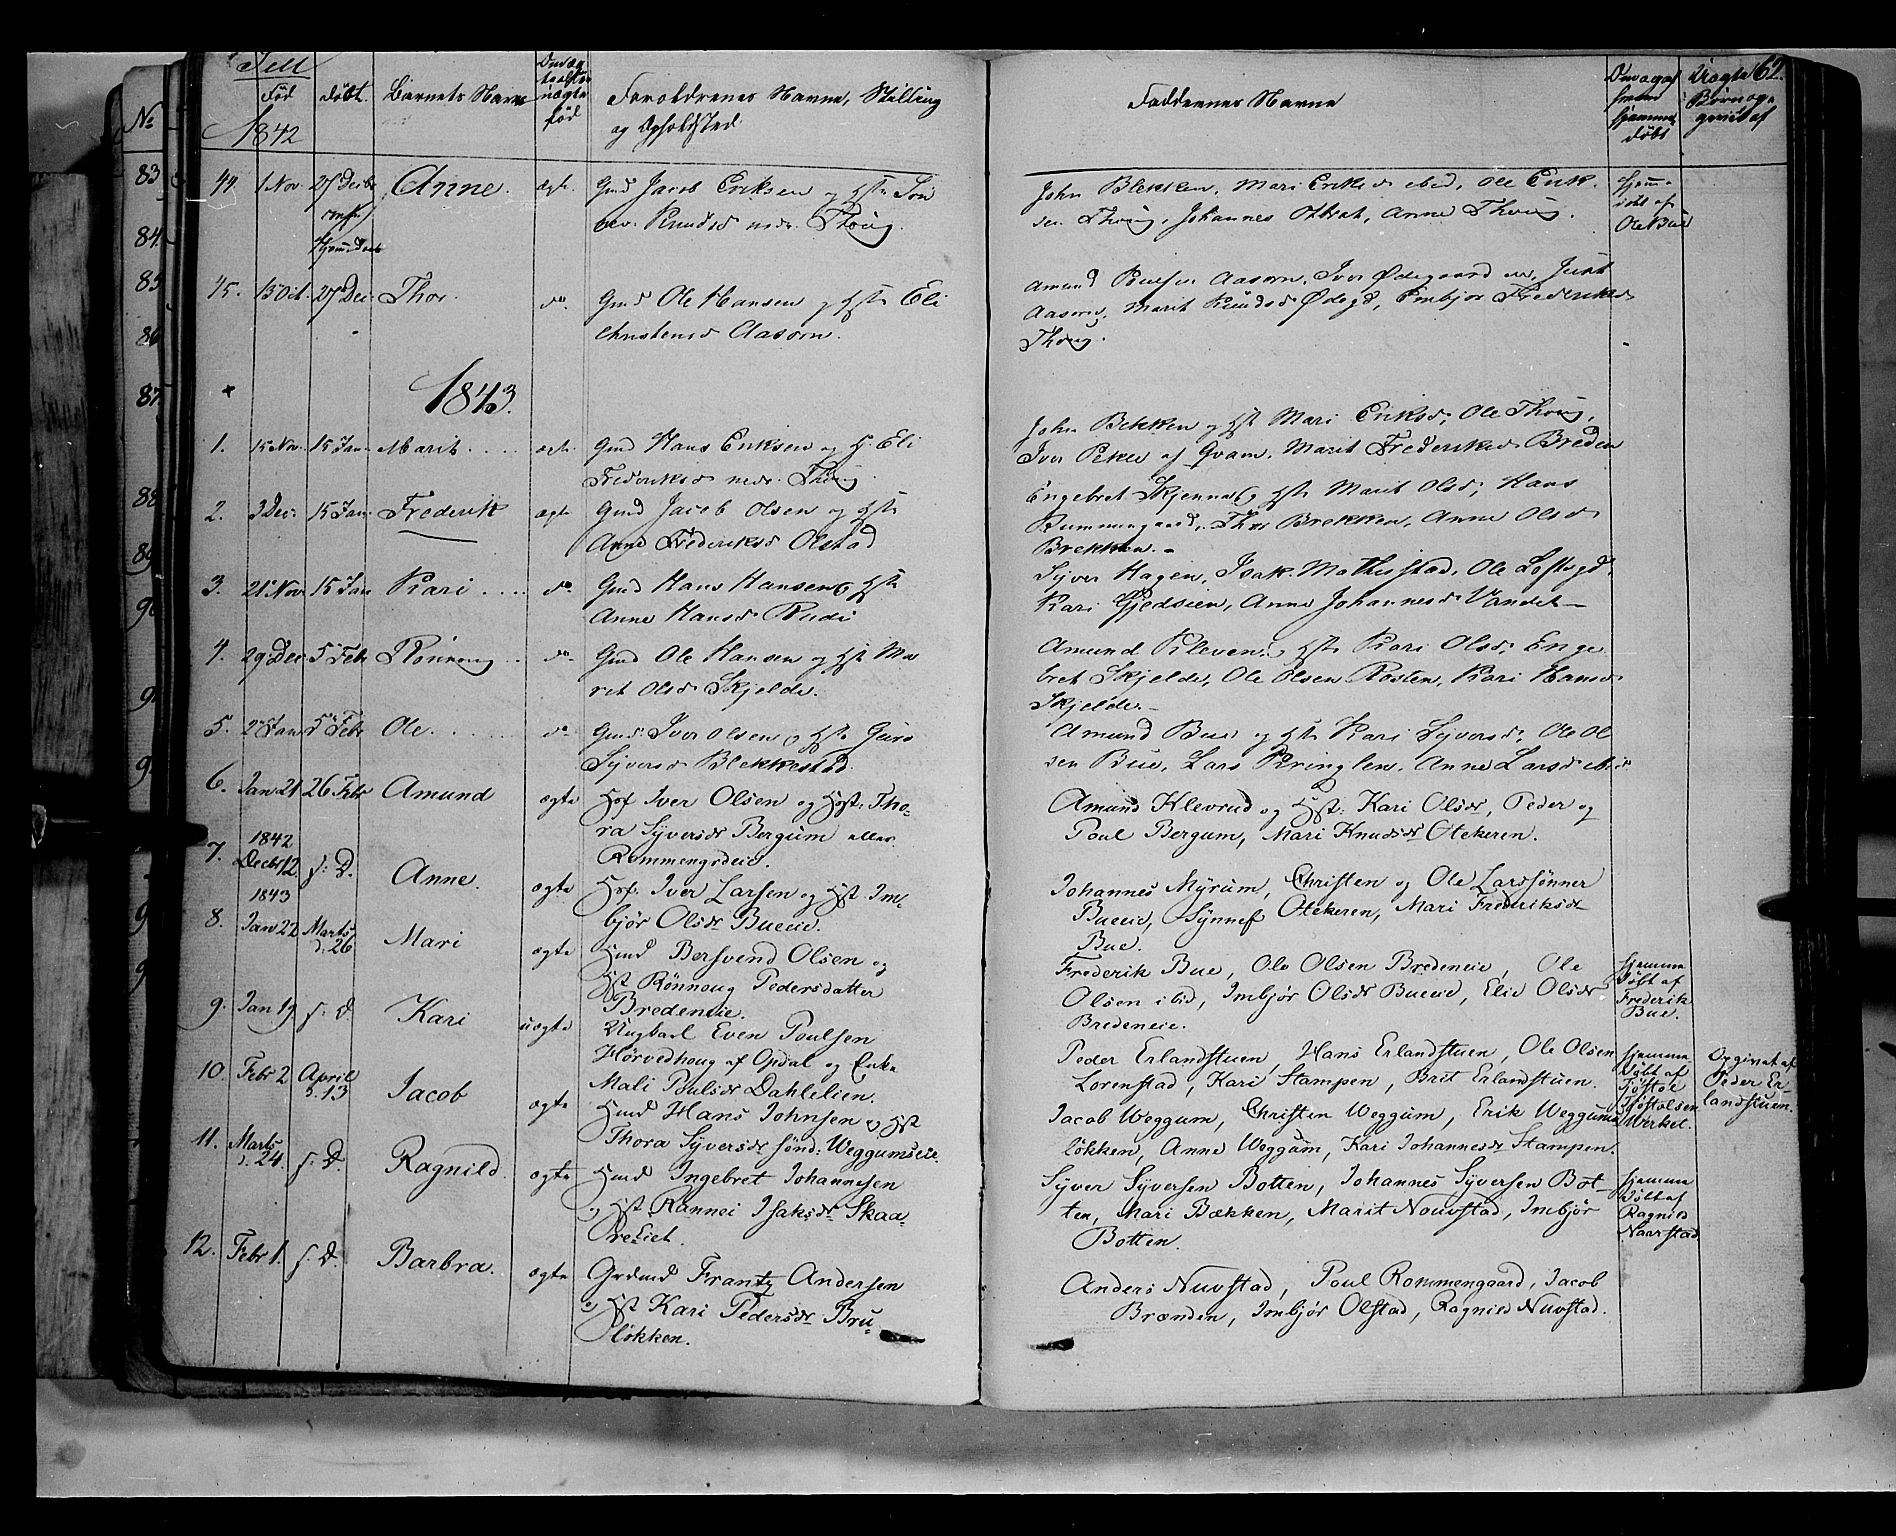 Sell
No
Fød
Døbt.
Barnets Navn
uægte
fød
Foreldrenes Navne, Stilling
og Opholdsted
Faddernes Navne
hjemme
døbt
Uægte
Børn
af
62.
1842
83
84
85
86
87
88
89
90
44. 1 Nov 27 Decbr Anne. ægt. Gmd Jacob Eriksen og Hst.
Knudsd nedr. Thoug.
John Blekken, Mari Eriksd ibid, Ole Erik
sen Thoug, Johannes Anne Thoug.
af
Ole Bue
45. 15 Oct. 27 Dec. Thor. do. Gmd Ole Hansen og Hst. Eli
Christensd Aasørn.
Amund Aasørn, Iver Ødegaard
Aasørn, Marit Knudsd Ødegd, Embjør Frederiksd
Thoug.
1843.
1. 15 Nov. 15 Jan. Marit ægt. Gmd Hans Eriksen og H. Eli
Frederiksd nedr. Thoug.
John Blekken og Hst Mari Eriksd, Ole Thoug,
Iver af Qvam, Marit Frederiksd Breden
2. 3 Dec. 15 Jan. Frederik ægt. Gmd Jacob Olsen og Hst.
Anne Frederiksd Olstad
Engebret Skjenna og Hst. Marit Olsd, Hans
Rommengaard, Thor Brekken, Anne Olsd
Brekken.
3. 21 Nov. 15 Jan Kari do. Gmd Hans Hansen og Hst.
Anne Hansd Rudi
Syver Hagen, Isak Mathisstad, Ole Loftsgd,
Kari Anne Johannesd
4. 29 Dec 5 Febr Rønnoug do. Gmd Ole Hansen og Hst. Ma
rit Olsd Skjelde.
Amund Kleven og Hst. Kari Olsd, Enge
bret Skjelde, Ole Olsen Rosten, Kari Hansd
Skjelde.
5. 2 Jan 5 Febr Ole do Gmd. Iver Olsen og Hst. Guro
Syversd Blekkestad.
Amund Bue og Hst. Kari Syversd, Ole Ol
sen Bue, Lars Kringlen, Anne Larsd ibid
6. Jan 21 26 Febr Amund ægte Hsf. Iver Olsen og Hst. Tho-
ra Syversdr Bergum eller
Rommengrdeie.
Amund Klevrud og Hst. Kari Olsdr, Peder og
Poul Bergum, Mari Knudsdr Otekeren.
7. 1842
Decbr 12. s. D. Anne. ægte Hsf. Iver Larsen og Hst. Im-
bjør Olsdr Bueeie.
Johannes Myrum, Christen og Ole Larssønner
Bueeie, Synnef Otekeren, Mari Fredriksdr
Bue.
1843
8. Jan 22 Marts
d. 26 Mari ægte Hmd Bersvend Olsen og
Hst Rønnoug Pedersdatter
Bredeneie.
Frederik Bue, Ole Olsen Bredeneie, Ole
Olsen ibid, Imbjør Olsdr Bueeie, Elie Olsdr
Bredeneie.
hjemme
døbt af
Frederik
Bue.
9. Jan 19 s. D. Kari uægte Ungkarl Even Poulsen
Hørvedhoug af Opdal og Enke
Mali Poulsdr Dahlelien.
Peder Erlandstuen, Hans Erlandstuen, Ole Olsen
Lorenstad, Kari Stampen, Brit Erlandstuen.
hjemme
døbt af
Tjøstol
Tjøstolsen
Værkel.
Opgivet af
Peder Er
landstuen.
10. Febr 2 April
d. 13 Jacob ægte Hmd Hans Johnsen og Hst
Thora Syversdr sønd: Weggumseie.
Jacob Weggum, Christen Weggum, Erik Weggums
løkken, Anne Weggum, Kari Johannesdr Stampen.
11. Marts
d. 24. s. D. Ragnild. ægte Hmd Ingebret Johannesen
og Hst Rannei Isaksdr Skaa-
redeiet.
Syver Syversen Botten, Johannes Syversen Bot-
ten, Mari Bækken, Marit Nouvstad, Imbjør
Botten.
hjemme
døbt af
Ragnild
Naarstad
12. Febr 1. s. D. Barbra. ægte Grdmd Frantz Andersen
og Hst Kari Pedersdr Bru-
løkken.
Anders Nuvstad, Poul Rommengaard, Jacob
Brænden, Imbjør Olstad, Ragnild Nuvstad.